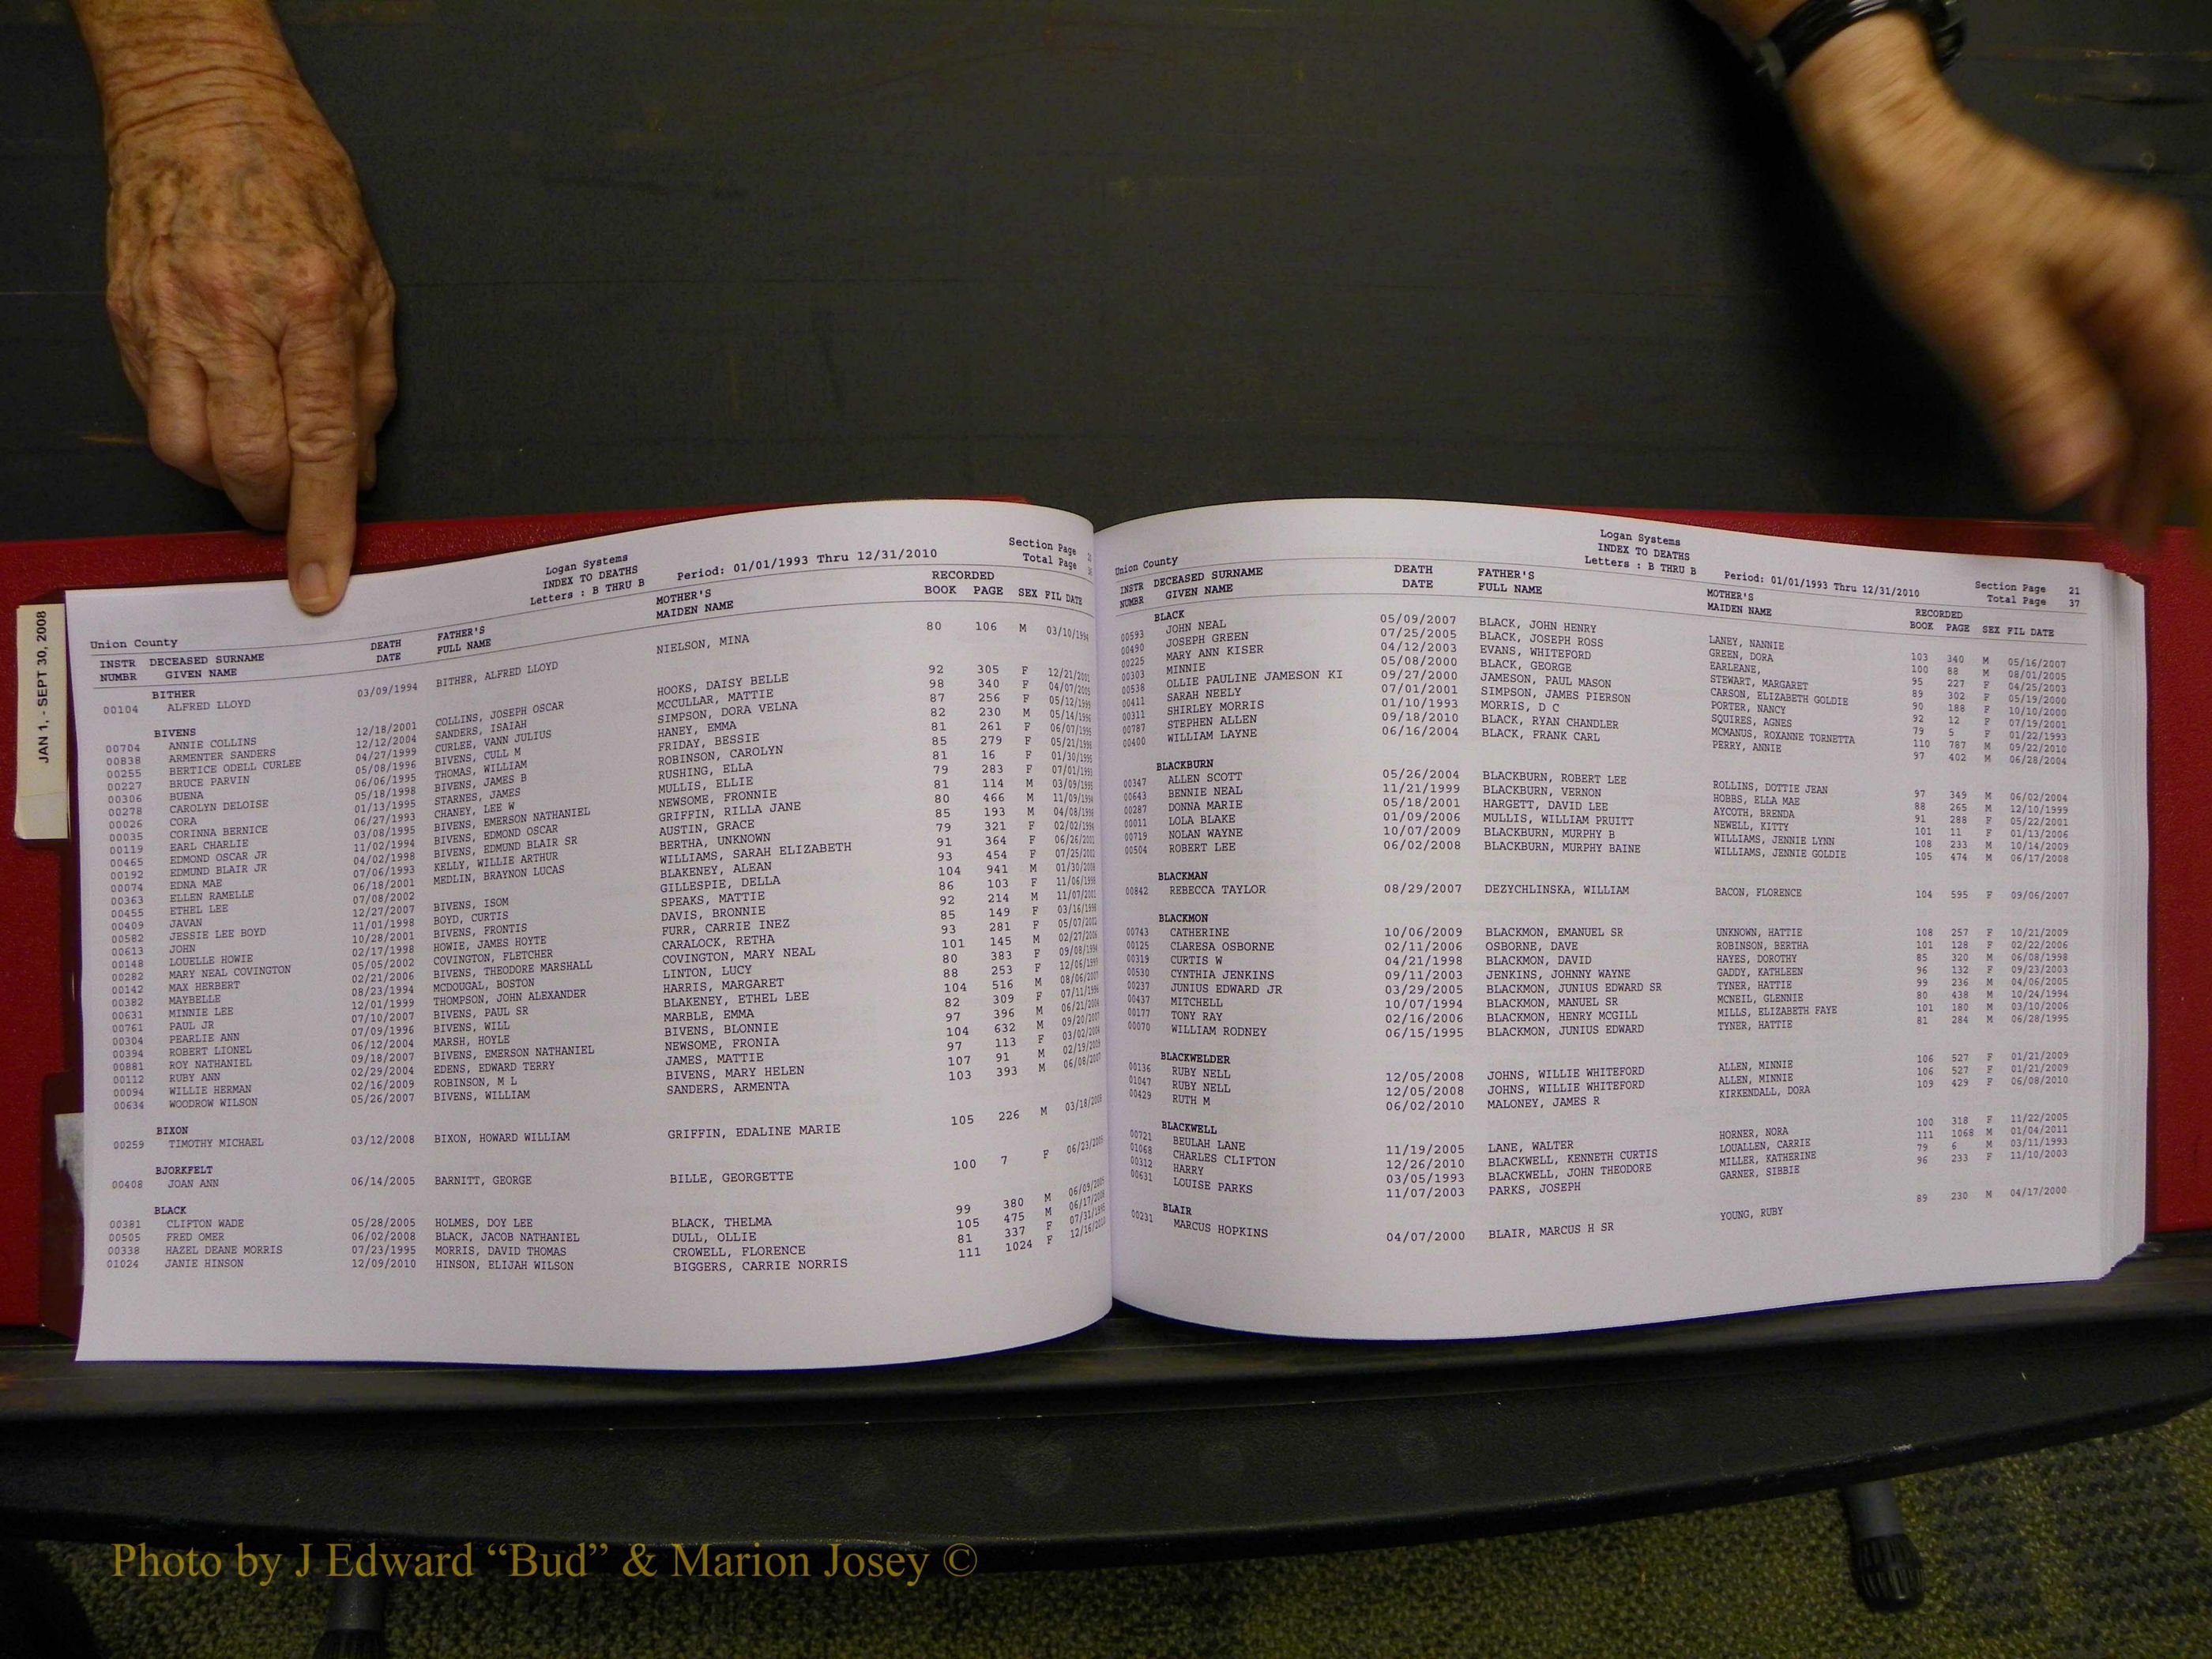 JAN 1, - SEPT 30, 2008
Logan Systems
INDEX TO DEATHS
Letters : B THRU B
Period: 01/01/1993 Thru 12/31/2010
Section Page
Total Page
Union County
INSTR DECEASED SURNAME DEATH FATHER'S MOTHER'S RECORDED
NUMBR GIVEN NAME DATE FULL NAME MAIDEN NAME BOOK PAGE SEX FIL DATE
BITHER
00104 ALFRED LLOYD 03/09/1994 BITHER, ALFRED LLOYD NIELSON, MINA 80 106 M 03/10/1994
BIVENS
00704 ANNIE COLLINS 12/18/2001 COLLINS, JOSEPH OSCAR HOOKS, DAISY BELLE 92 305 F 12/21/2001
00838 ARMENTER SANDERS 12/12/2004 SANDERS, ISAIAH MCCULLAR, MATTIE 98 340 F 04/07/2005
00255 BERTICE ODELL CURLEE 04/27/1999 CURLEE, VANN JULIUS SIMPSON, DORA VELNA 87 256 F 05/12/1999
00227 BRUCE PARVIN 05/08/1996 BIVENS, CULL M HANEY, EMMA 82 230 M 05/14/1996
00306 BUENA 06/06/1995 THOMAS, WILLIAM FRIDAY, BESSIE 81 261 F 06/07/1995
00278 CAROLYN DELOISE 05/18/1998 BIVENS, JAMES B ROBINSON, CAROLYN 85 279 F 05/21/1998
00026 CORA 01/13/1995 STARNES, JAMES RUSHING, ELLA 81 16 F 01/30/1995
00035 CORINNA BERNICE 06/27/1993 CHANEY, LEE W MULLIS, ELLIE 79 283 F 07/01/1993
00119 EARL CHARLIE 03/08/1995 BIVENS, EMERSON NATHANIEL NEWSOME, FRONNIE 81 114 M 03/09/1995
00465 EDMOND OSCAR JR 11/02/1994 BIVENS, EDMOND OSCAR GRIFFIN, RILLA JANE 80 466 M 11/09/1994
00192 EDMUND BLAIR JR 04/02/1998 BIVENS, EDMUND BLAIR SR AUSTIN, GRACE 85 193 M 04/08/1998
00074 EDNA MAE 07/06/1993 KELLY, WILLIE ARTHUR BERTHA, UNKNOWN 79 321 F 02/02/1994
00363 ELLEN RAMELLE 06/18/2001 MEDLIN, BRAYNON LUCAS WILLIAMS, SARAH ELIZABETH 91 364 F 06/26/2001
00455 ETHEL LEE 07/08/2002 BLAKENEY, ALEAN 93 454 F 07/25/2002
00409 JAVAN 12/27/2007 BIVENS, ISOM GILLESPIE, DELLA 104 941 M 01/30/2008
00582 JESSIE LEE BOYD 11/01/1998 BOYD, CURTIS SPEAKS, MATTIE 86 103 F 11/06/1998
00613 JOHN 10/28/2001 BIVENS, FRONTIS DAVIS, BRONNIE 92 214 M 11/07/2001
00148 LOUELLE HOWIE 02/17/1998 HOWIE, JAMES HOYTE FURR, CARRIE INEZ 85 149 F 03/16/1998
00282 MARY NEAL COVINGTON 05/05/2002 COVINGTON, FLETCHER CARALOCK, RETHA 93 281 F 05/07/2002
00142 MAX HERBERT 02/21/2006 BIVENS, THEODORE MARSHALL COVINGTON, MARY NEAL 101 145 M 02/27/2006
00382 MAYBELLE 08/23/1994 MCDOUGAL, BOSTON LINTON, LUCY 80 383 F 09/08/1994
00631 MINNIE LEE 12/01/1999 THOMPSON, JOHN ALEXANDER HARRIS, MARGARET 88 253 F 12/06/1999
00761 PAUL JR 07/10/2007 BIVENS, PAUL SR BLAKENEY, ETHEL LEE 104 516 M 08/06/2007
00304 PEARLIE ANN 07/09/1996 BIVENS, WILL MARBLE, EMMA 82 309 F 07/11/1996
00394 ROBERT LIONEL 06/12/2004 MARSH, HOYLE BIVENS, BLONNIE 97 396 M 06/21/2004
00881 ROY NATHANIEL 09/18/2007 BIVENS, EMERSON NATHANIEL NEWSOME, FRONIA 104 632 M 09/20/2007
00112 RUBY ANN 02/29/2004 EDENS, EDWARD TERRY JAMES, MATTIE 97 113 F 03/02/2004
00094 WILLIE HERMAN 02/16/2009 ROBINSON, M L BIVENS, MARY HELEN 107 91 M 02/19/2009
00634 WOODROW WILSON 05/26/2007 BIVENS, WILLIAM SANDERS, ARMENTA 103 393 M 06/08/2007
BIXON
00259 TIMOTHY MICHAEL 03/12/2008 BIXON, HOWARD WILLIAM GRIFFIN, EDALINE MARIE 105 226 M 03/18/2008
BJORKFELT
00408 JOAN ANN 06/14/2005 BARNITT, GEORGE BILLE, GEORGETTE 100 7 F 06/23/2005
BLACK
00381 CLIFTON WADE 05/28/2005 HOLMES, DOY LEE BLACK, THELMA 99 380 M 06/09/2005
00505 FRED OMER 06/02/2008 BLACK, JACOB NATHANIEL DULL, OLLIE 105 475 M 06/17/2008
00338 HAZEL DEANE MORRIS 07/23/1995 MORRIS, DAVID THOMAS CROWELL, FLORENCE 81 337 F 07/31/1995
01024 JANIE HINSON 12/09/2010 HINSON, ELIJAH WILSON BIGGERS, CARRIE NORRIS 111 1024 F 12/16/2010
Logan Systems
INDEX TO DEATHS
Letters : B THRU B
Period: 01/01/1993 Thru 12/31/2010
Section Page 21
Total Page 37
Union County
INSTR DECEASED SURNAME DEATH FATHER'S MOTHER'S RECORDED
NUMBR GIVEN NAME DATE FULL NAME MAIDEN NAME BOOK PAGE SEX FIL DATE
BLACK
00593 JOHN NEAL 05/09/2007 BLACK, JOHN HENRY LANEY, NANNIE 103 340 M 05/16/2007
00490 JOSEPH GREEN 07/25/2005 BLACK, JOSEPH ROSS GREEN, DORA 100 88 M 08/01/2005
00225 MARY ANN KISER 04/12/2003 EVANS, WHITEFORD EARLEANE, 95 227 F 04/25/2003
00303 MINNIE 05/08/2000 BLACK, GEORGE STEWART, MARGARET 89 302 F 05/19/2000
00538 OLLIE PAULINE JAMESON KI 09/27/2000 JAMESON, PAUL MASON CARSON, ELIZABETH GOLDIE 90 188 F 10/10/2000
00411 SARAH NEELY 07/01/2001 SIMPSON, JAMES PIERSON PORTER, NANCY 92 12 F 07/19/2001
00311 SHIRLEY MORRIS 01/10/1993 MORRIS, D C SQUIRES, AGNES 79 5 F 01/22/1993
00787 STEPHEN ALLEN 09/18/2010 BLACK, RYAN CHANDLER MCMANUS, ROXANNE TORNETTA 110 787 M 09/22/2010
00400 WILLIAM LAYNE 06/16/2004 BLACK, FRANK CARL PERRY, ANNIE 97 402 M 06/28/2004
BLACKBURN
00347 ALLEN SCOTT 05/26/2004 BLACKBURN, ROBERT LEE ROLLINS, DOTTIE JEAN 97 349 M 06/02/2004
00643 BENNIE NEAL 11/21/1999 BLACKBURN, VERNON HOBBS, ELLA MAE 88 265 M 12/10/1999
00287 DONNA MARIE 05/18/2001 HARGETT, DAVID LEE AYCOTH, BRENDA 91 288 F 05/22/2001
00011 LOLA BLAKE 01/09/2006 MULLIS, WILLIAM PRUITT NEWELL, KITTY 101 11 F 01/13/2006
00719 NOLAN WAYNE 10/07/2009 BLACKBURN, MURPHY B WILLIAMS, JENNIE LYNN 108 233 M 10/14/2009
00504 ROBERT LEE 06/02/2008 BLACKBURN, MURPHY BAINE WILLIAMS, JENNIE GOLDIE 105 474 M 06/17/2008
BLACKMAN
00842 REBECCA TAYLOR 08/29/2007 DEZYCHLINSKA, WILLIAM BACON, FLORENCE 104 595 F 09/06/2007
BLACKMON
00743 CATHERINE 10/06/2009 BLACKMON, EMANUEL SR UNKNOWN, HATTIE 108 257 F 10/21/2009
00125 CLARESA OSBORNE 02/11/2006 OSBORNE, DAVE ROBINSON, BERTHA 101 128 F 02/22/2006
00319 CURTIS W 04/21/1998 BLACKMON, DAVID HAYES, DOROTHY 85 320 M 06/08/1998
00530 CYNTHIA JENKINS 09/11/2003 JENKINS, JOHNNY WAYNE GADDY, KATHLEEN 96 132 F 09/23/2003
00237 JUNIUS EDWARD JR 03/29/2005 BLACKMON, JUNIUS EDWARD SR TYNER, HATTIE 99 236 M 04/06/2005
00437 MITCHELL 10/07/1994 BLACKMON, MANUEL SR MCNEIL, GLENNIE 80 438 M 10/24/1994
00177 TONY RAY 02/16/2006 BLACKMON, HENRY MCGILL MILLS, ELIZABETH FAYE 101 180 M 03/10/2006
00070 WILLIAM RODNEY 06/15/1995 BLACKMON, JUNIUS EDWARD TYNER, HATTIE 81 284 M 06/28/1995
BLACKWELDER
00136 RUBY NELL 12/05/2008 JOHNS, WILLIE WHITEFORD ALLEN, MINNIE 106 527 F 01/21/2009
01047 RUBY NELL 12/05/2008 JOHNS, WILLIE WHITEFORD ALLEN, MINNIE 106 527 F 01/21/2009
00429 RUTH M 06/02/2010 MALONEY, JAMES R KIRKENDALL, DORA 109 429 F 06/08/2010
BLACKWELL
00721 BEULAH LANE 11/19/2005 LANE, WALTER HORNER, NORA 100 318 F 11/22/2005
01068 CHARLES CLIFTON 12/26/2010 BLACKWELL, KENNETH CURTIS LOUALLEN, CARRIE 111 1068 M 01/04/2011
00312 HARRY 03/05/1993 BLACKWELL, JOHN THEODORE MILLER, KATHERINE 79 6 M 03/11/1993
00631 LOUISE PARKS 11/07/2003 PARKS, JOSEPH GARNER, SIBBIE 96 233 F 11/10/2003
BLAIR
00231 MARCUS HOPKINS 04/07/2000 BLAIR, MARCUS H SR YOUNG, RUBY 89 230 M 04/17/2000
Photo by J Edward “Bud” & Marion Josey ©